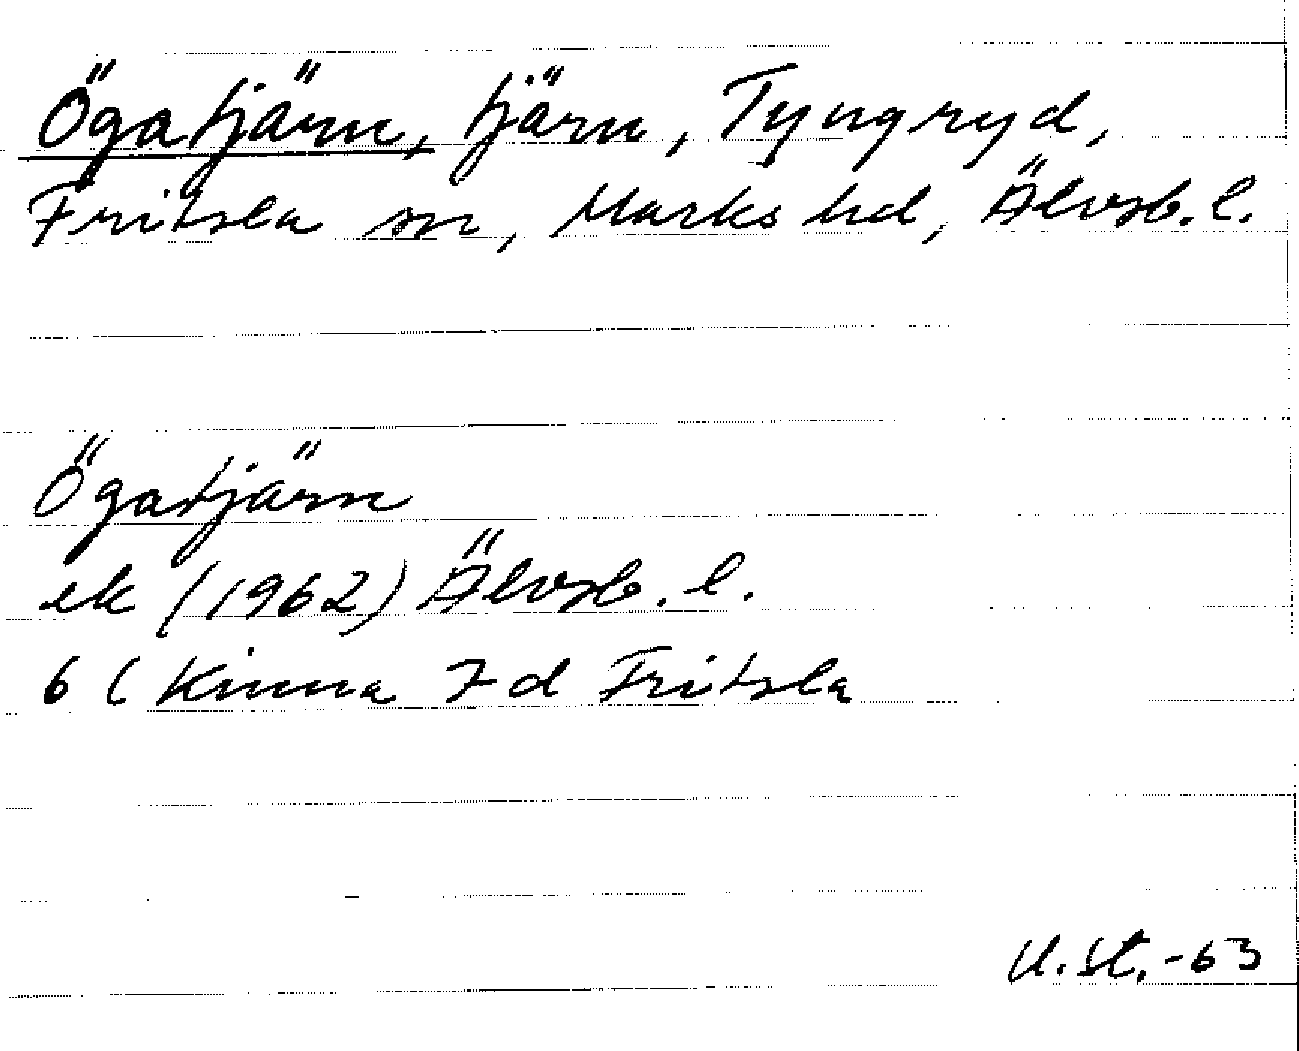 Ögatjärn, tjärn, Tyngryd,
Fritsla sn, Marks hd, Älvsb. l.
Ögatjärn
ek (1962) Älvsb. l.
6 C Kinna 7 d Fritsla
U. St. -63